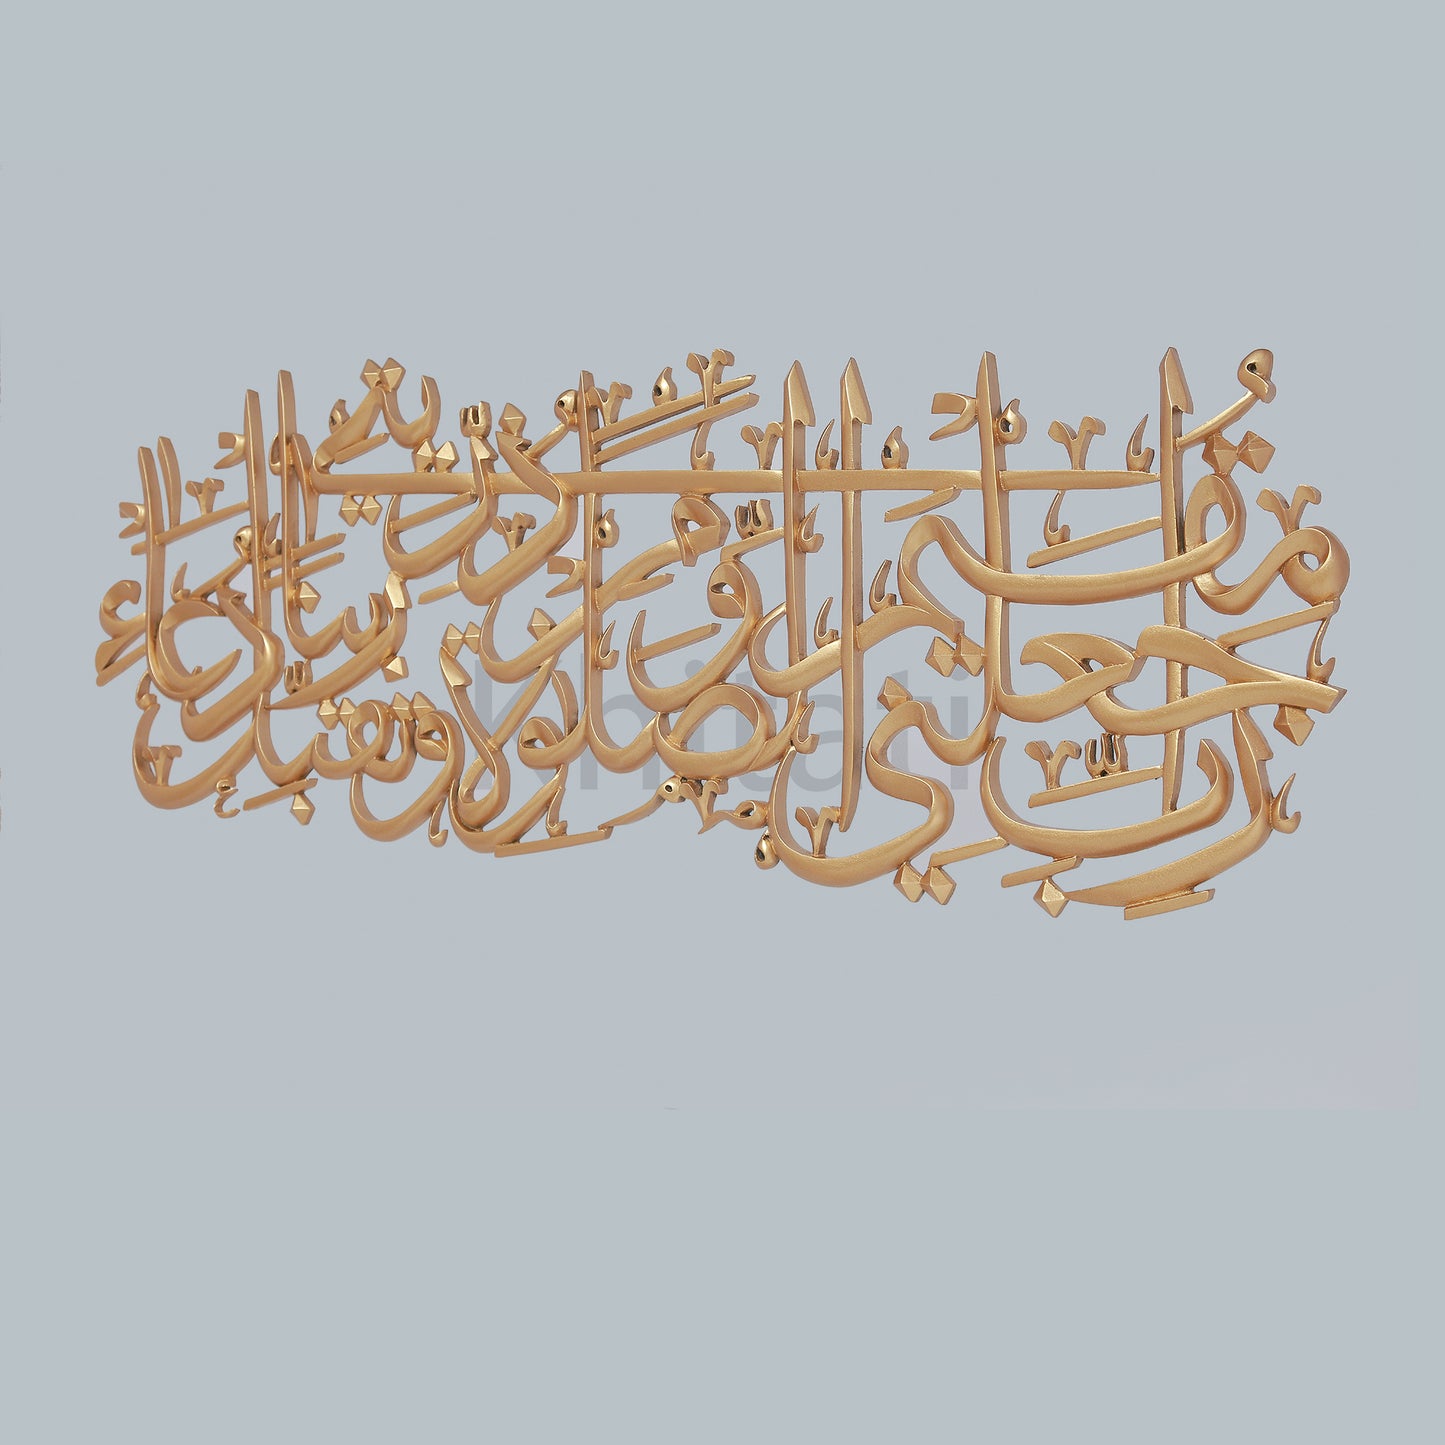 رَبِّ اجْعَلْنِي مُقِيمَ الصَّلَاةِ وَمِنْ ذُرِّيَّتِي رَبَّنَا وَتَقَبَّلْ دُعَاءِ
Khitati